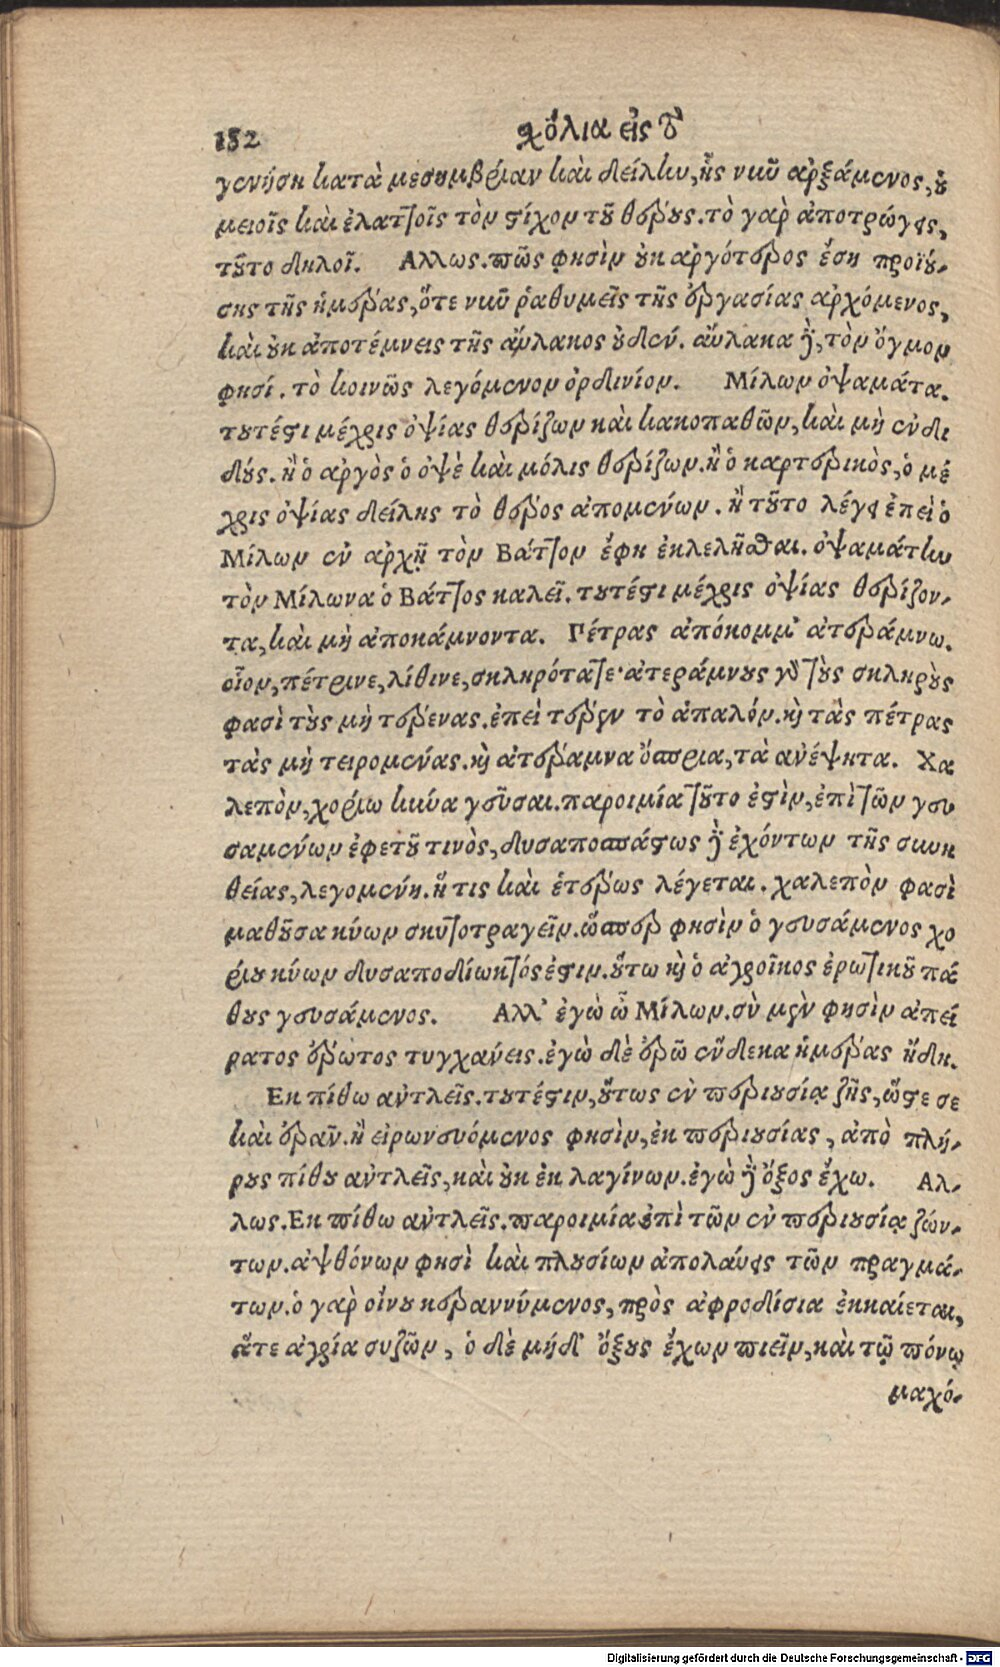 152 χόλια εἰς τὸ
γενήσῃ κατὰ μεσουμβρίαν καὶ δείλην, ἧς νιῦ ἀρξάμενος, οὐ
μειοῖς καὶ ἐλαττοῖς τὸν στίχον τοῦ θέρους. τὸ γαρ ἀποτρώγεις,
τοῦτο δηλοῖ. Αλλως. πῶς φησὶν οὐκ ἀργότερος ἔσῃ προϊού-
σης τῆς ἡμέρας, ὅτε νιῦ ῥαθυμεῖς τῆς ἐργασίας ἀρχόμενος,
καὶ οὐκ ἀποτέμνεις τῆς αὔλακος οὐδέν. αὔλακα δὲ, τὸν ὄγμον
φησί. τὸ κοινῶς λεγόμενον ὀρδινίον. Μίλων ὀψαμάτα.
τουτέστι μέχρις ὀψίας θερίζων καὶ κακοπαθῶν, καὶ μὴ ἐνδι
δούς. ἢ ὁ ἀργὸς ὁ ὀψὲ καὶ μόλις θερίζων. ἢ ὁ καρτερικὸς, ὁ μέ
χρις ὀψίας δείλης τὸ θέρος ἀπομένων. ἢ τοῦτο λέγει ἐπεὶ ὁ
Μίλων ἐν ἀρχῇ τὸν Βάττον ἔφη ἐκλελῆσθαι. ὀψαμάτην
τὸν Μίλωνα ὁ Βάττος καλεῖ. τουτέστι μέχρις ὀψίας θερίζον-
τα, καὶ μὴ ἀποκάμνοντα. Πέτρας ἀπόκομμ' ἀτεράμνω.
οἷον, πέτρινε, λίθινε, σκληρότατε· ἀτεράμνους γὰρ τοὺς σκληροὺς
φασὶ τοὺς μὴ τέρενας. ἐπεὶ τέρεν τὸ ἀπαλόν. καὶ τὰς πέτρας
τὰς μὴ τειρομένας. καὶ ἀτέραμνα ὄσπρια, τὰ ἀνέψητα. Χα
λεπὸν, χορίω κύνα γεῦσαι. παροιμία τοῦτο ἐστὶν, ἐπὶ τῶν γευ
σαμένων ἐφετοῦ τινὸς, δυσαποσπάστως δὲ ἐχόντων τῆς συνη
θείας, λεγομένη. ἥ τις καὶ ἑτέρως λέγεται. χαλεπὸν φασὶ
μαθοῦσα κύων σκυτοτραγεῖν. ὥσπερ φησὶν ὁ γευσάμενος χο
ρίου κύων δυσαποδίωκτός ἐστιν. οὕτω καὶ ὁ ἀγροῖκος ἐρωτικοῦ πά
θους γευσάμενος. Αλλ' ἐγὼ ὦ Μίλων. σὺ μὲν φησὶν ἀπεί
ρατος ἔρωτος τυγχάνεις. ἐγὼ δὲ ἐρῶ ἕνδεκα ἡμέρας ἤδη.
Εκ πίθω ἀντλεῖς. τουτέστιν, οὕτως ἐν περιουσίᾳ ζῇς, ὥστε σε
καὶ ἐρᾶν. ἢ εἰρωνευόμενος φησὶν, ἐκ περιουσίας, ἀπὸ πλή-
ρους πίθου ἀντλεῖς, καὶ οὐκ ἐκ λαγίνων. ἐγὼ δὲ ὄξος ἔχω. Αλ-
λως. Εκ πίθω ἀντλεῖς. παροιμία ἐπὶ τῶν ἐν περιουσίᾳ ζών-
των. ἀφθόνων φησὶ καὶ πλουσίων ἀπολαύεις τῶν πραγμά-
των. ὁ γαρ οἴνου κεραννύμενος, πρὸς ἀφροδίσια ἐκκαίεται,
ἅτε ἀγρία συζῶν, ὁ δὲ μήδ' ὄξους ἔχων πιεῖν, καὶ τῷ πόνῳ
μαχό-
Digitalisierung gefördert durch die Deutsche Forschungsgemeinschaft - DFG